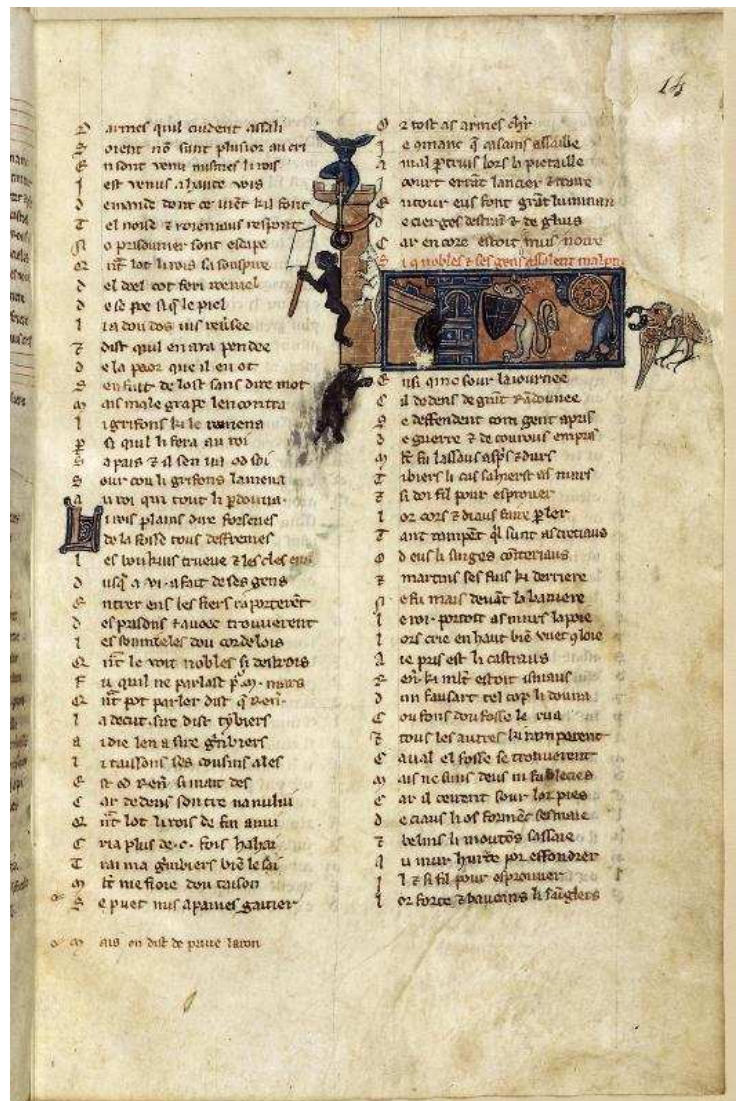 14
D armes quil cuident assali
S oient nõ sunt plusior au cri
E n sont venu meismes li rois
I est venus a haute vois
D emande dont ce vient kil font
T el noise & il respont
N o prisounier sont escape
Q nt lot li rois sa souspire
D el doel cot feri
D e se poe si q̃ le piel
L i a dou dos
& dist quil en ara
D e la paor que il en ot
S en fuit de lost sans dire mot
M ais male grape lencontra
L i grifons ki le ramena
P si quil li fera au roi
S a pais & il sen va od soi
S our cou li grifons lamena
A u roi qui tout li pdouna
L i rois plains dire forsenes
de la tous
L es trueve & les cles
D usq̃ a .vi. a fait de ses gens
E ntrer ens les fiers raporterent
D es prisons & avoec trouverent
L es dou cordelois
Q nt le voit nobles si destrois
F u quil ne parlast p .m. mars
Q nt pot parler dist q̃ Ren.
L a decut sire dist tybiers
A idie len a sire grībiers
L i taissons ses cousins ales
E st od Ren. si mait des
C ar dedens son tre na nului
Q nt lot li rois de fin anui
C ria plus de .c. fois hahai
T rai ma grībiers biē le sai
M lt me fioie dou taison
S e puet nus a paines gaitier
M ais on dist de prive laron
O r tost as armes chr
I e qmanc q̃ cascuns assaille
A mal ptruis lors la pietaille
C ourt errāt lancier & traire
E ntour eus font grāt luminaire
D e cierges & de gluis
C ar encore estoit mie nuis
Si q̃ nobles & ses gens assalent malpt.
E nsi q̃ine sour la journee
C il dedens de grāt rādounee
S e deffendent com gent apris
D e guerre & de courous empris
M lt fu lassaus aspres & durs
T ibiers li cas sahert as murs
& si doi fil pour esprouver
L or cors & diaus faire pler
T ant rampēt ql sunt as cretiaus
O d eus li singes
& martins ses fius ki derriere
N e fu mais devāt la baniere
L e roi portoit as murs lapoie
L ors crie en haut biē vuet q̃ loie
A ie pris est li castiaus
R en. ki mlt estoit isniaus
D un fausart tel cop li douna
C ou fons dou fosse le rua
& tous les autres ki ramparent
C aval el fosse se trouverent
M ais ne sunt deus ne bleciés
C ar il ceirent sour lor pies
D e ciaus li os
& belins li moutōs sassaie
A u mur hurte por effondrer
I l & si fil pour esprouver
L or force & baucens li saīglers